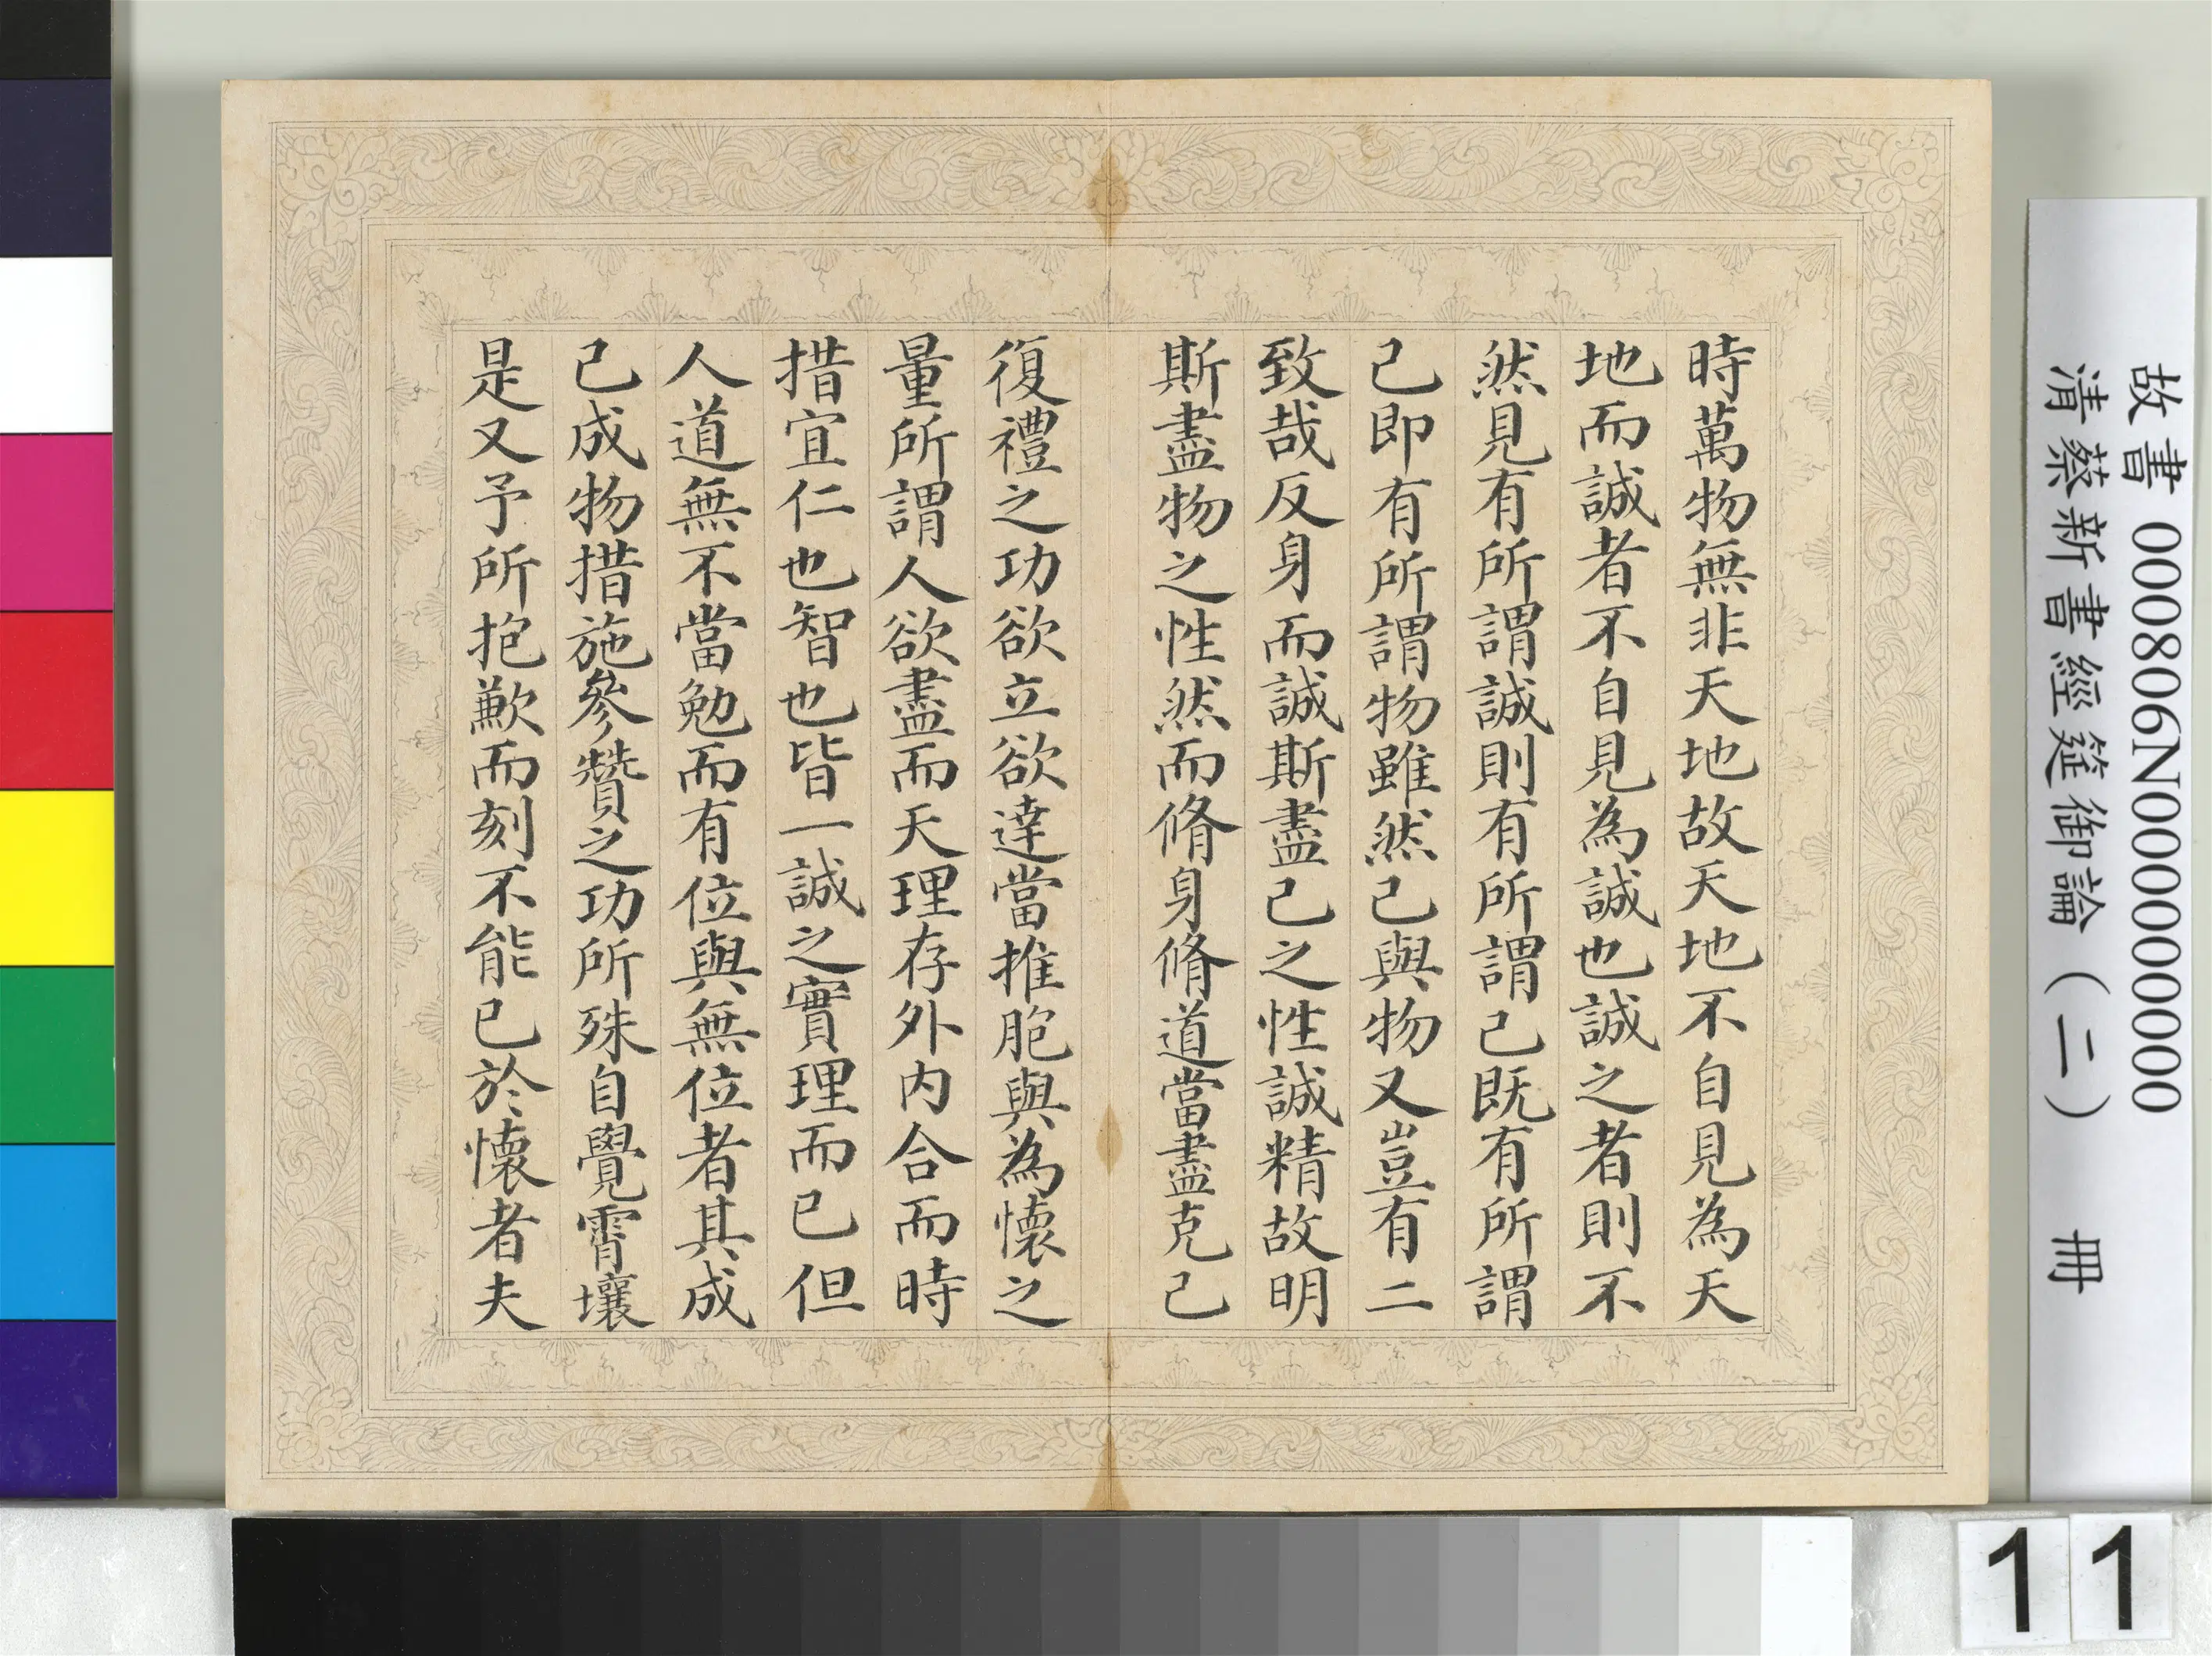 時萬物無非天地故天地不自見為天
地而誠者不自見為誠也誠之者則不
然見有所謂誠則有所謂己既有所謂
己即有所謂物雖然己與物又豈有二
致哉反身而誠斯盡己之性誠精故明
斯盡物之性然而脩身脩道當盡克己
復禮之功欲立欲達當推胞與為懷之
量所謂人欲盡而天理存外內合而時
措宜仁也智也皆一誠之實理而已但
人道無不當勉而有位與無位者其成
己成物措施參贊之功所殊自覺霄壤
是又予所抱歉而刻不能已於懷者夫
故書 000806N000000000
清蔡新書經筵御論（二） 冊
11